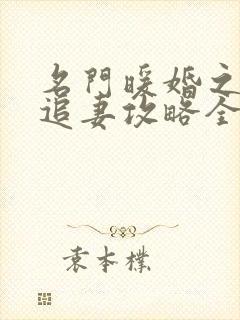 名門暖婚之
追妻攻略全
袁本樸